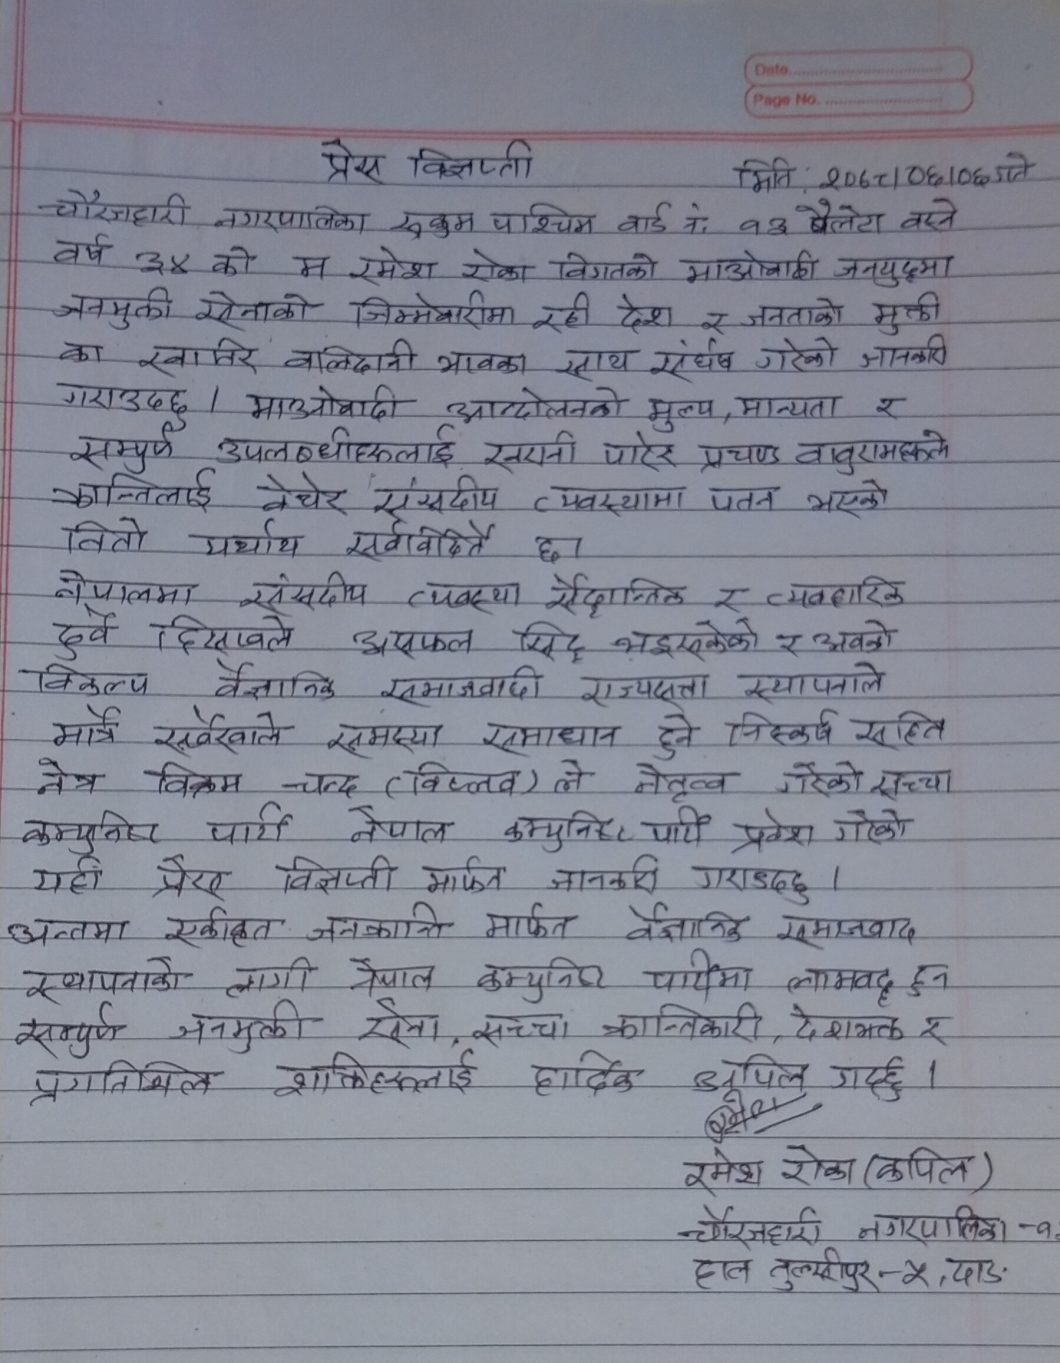 Date
Page No.
प्रेस विज्ञप्ती
मिति: २०७८।०६।०६ गते
चौरजहारी नगरपालिका रुकुम पाश्चिम वार्ड नं. १३ बैलेटा वस्ने
वर्ष ३४ को म रमेश रोका विगतको माओवादी जनयुद्दमा
जनमुक्ती सेनाको जिम्मेवारीमा रही देश र जनताको मुक्ती
का खातिर वालिदानी भावका साथ संर्घष गरेको जानकारी
गराउदछु । माओवादी आन्दोलनको मुल्य, मान्यता र
सम्पुर्ण उपलब्धीहरुलाई खरानी पारेर प्रचण्ड वावुरामहरुले
क्रान्तिलाई वेचेर संसदीय व्यवस्थामा पतन भएको
तितो यर्थाथ सर्वविदितै छ।
नेपालमा संसदीय व्यवस्था सैद्दान्तिक र व्यवहारिक
दुवै हिसावले असफल सिद्द भइसकेको र अवको
विकल्प वैज्ञानिक समाजवादी राज्यसत्ता स्थापनाले
मात्रै सवैखाले समस्या समाधान हुने निस्कर्ष सहित
नेत्र विक्रम चन्द (विप्लव) ले नेतृत्व गरेको सच्चा
कम्युनिष्ट पार्टी नेपाल कम्युनिष्ट पार्टी प्रवेश गरेको
यही प्रेस विज्ञप्ती मार्फत जानकारी गराउदछु ।
अन्तमा एकीकृत जनक्रान्ति मार्फत वैज्ञानिक समाजवाद
स्थापनाको लागी नेपाल कम्युनिष्ट पार्टीमा लामवद्द हुन
सम्पुर्ण जनमुक्ती सेना, सच्चा क्रान्तिकारी, देशभक्त र
प्रगतिशिल शक्तिहरुलाई हार्दिक अपिल गर्दछु ।
रमेश
रमेश रोका (कपिल)
चौरजहारी नगरपालिका -१
हाल तुल्सीपुर-५, दाङ